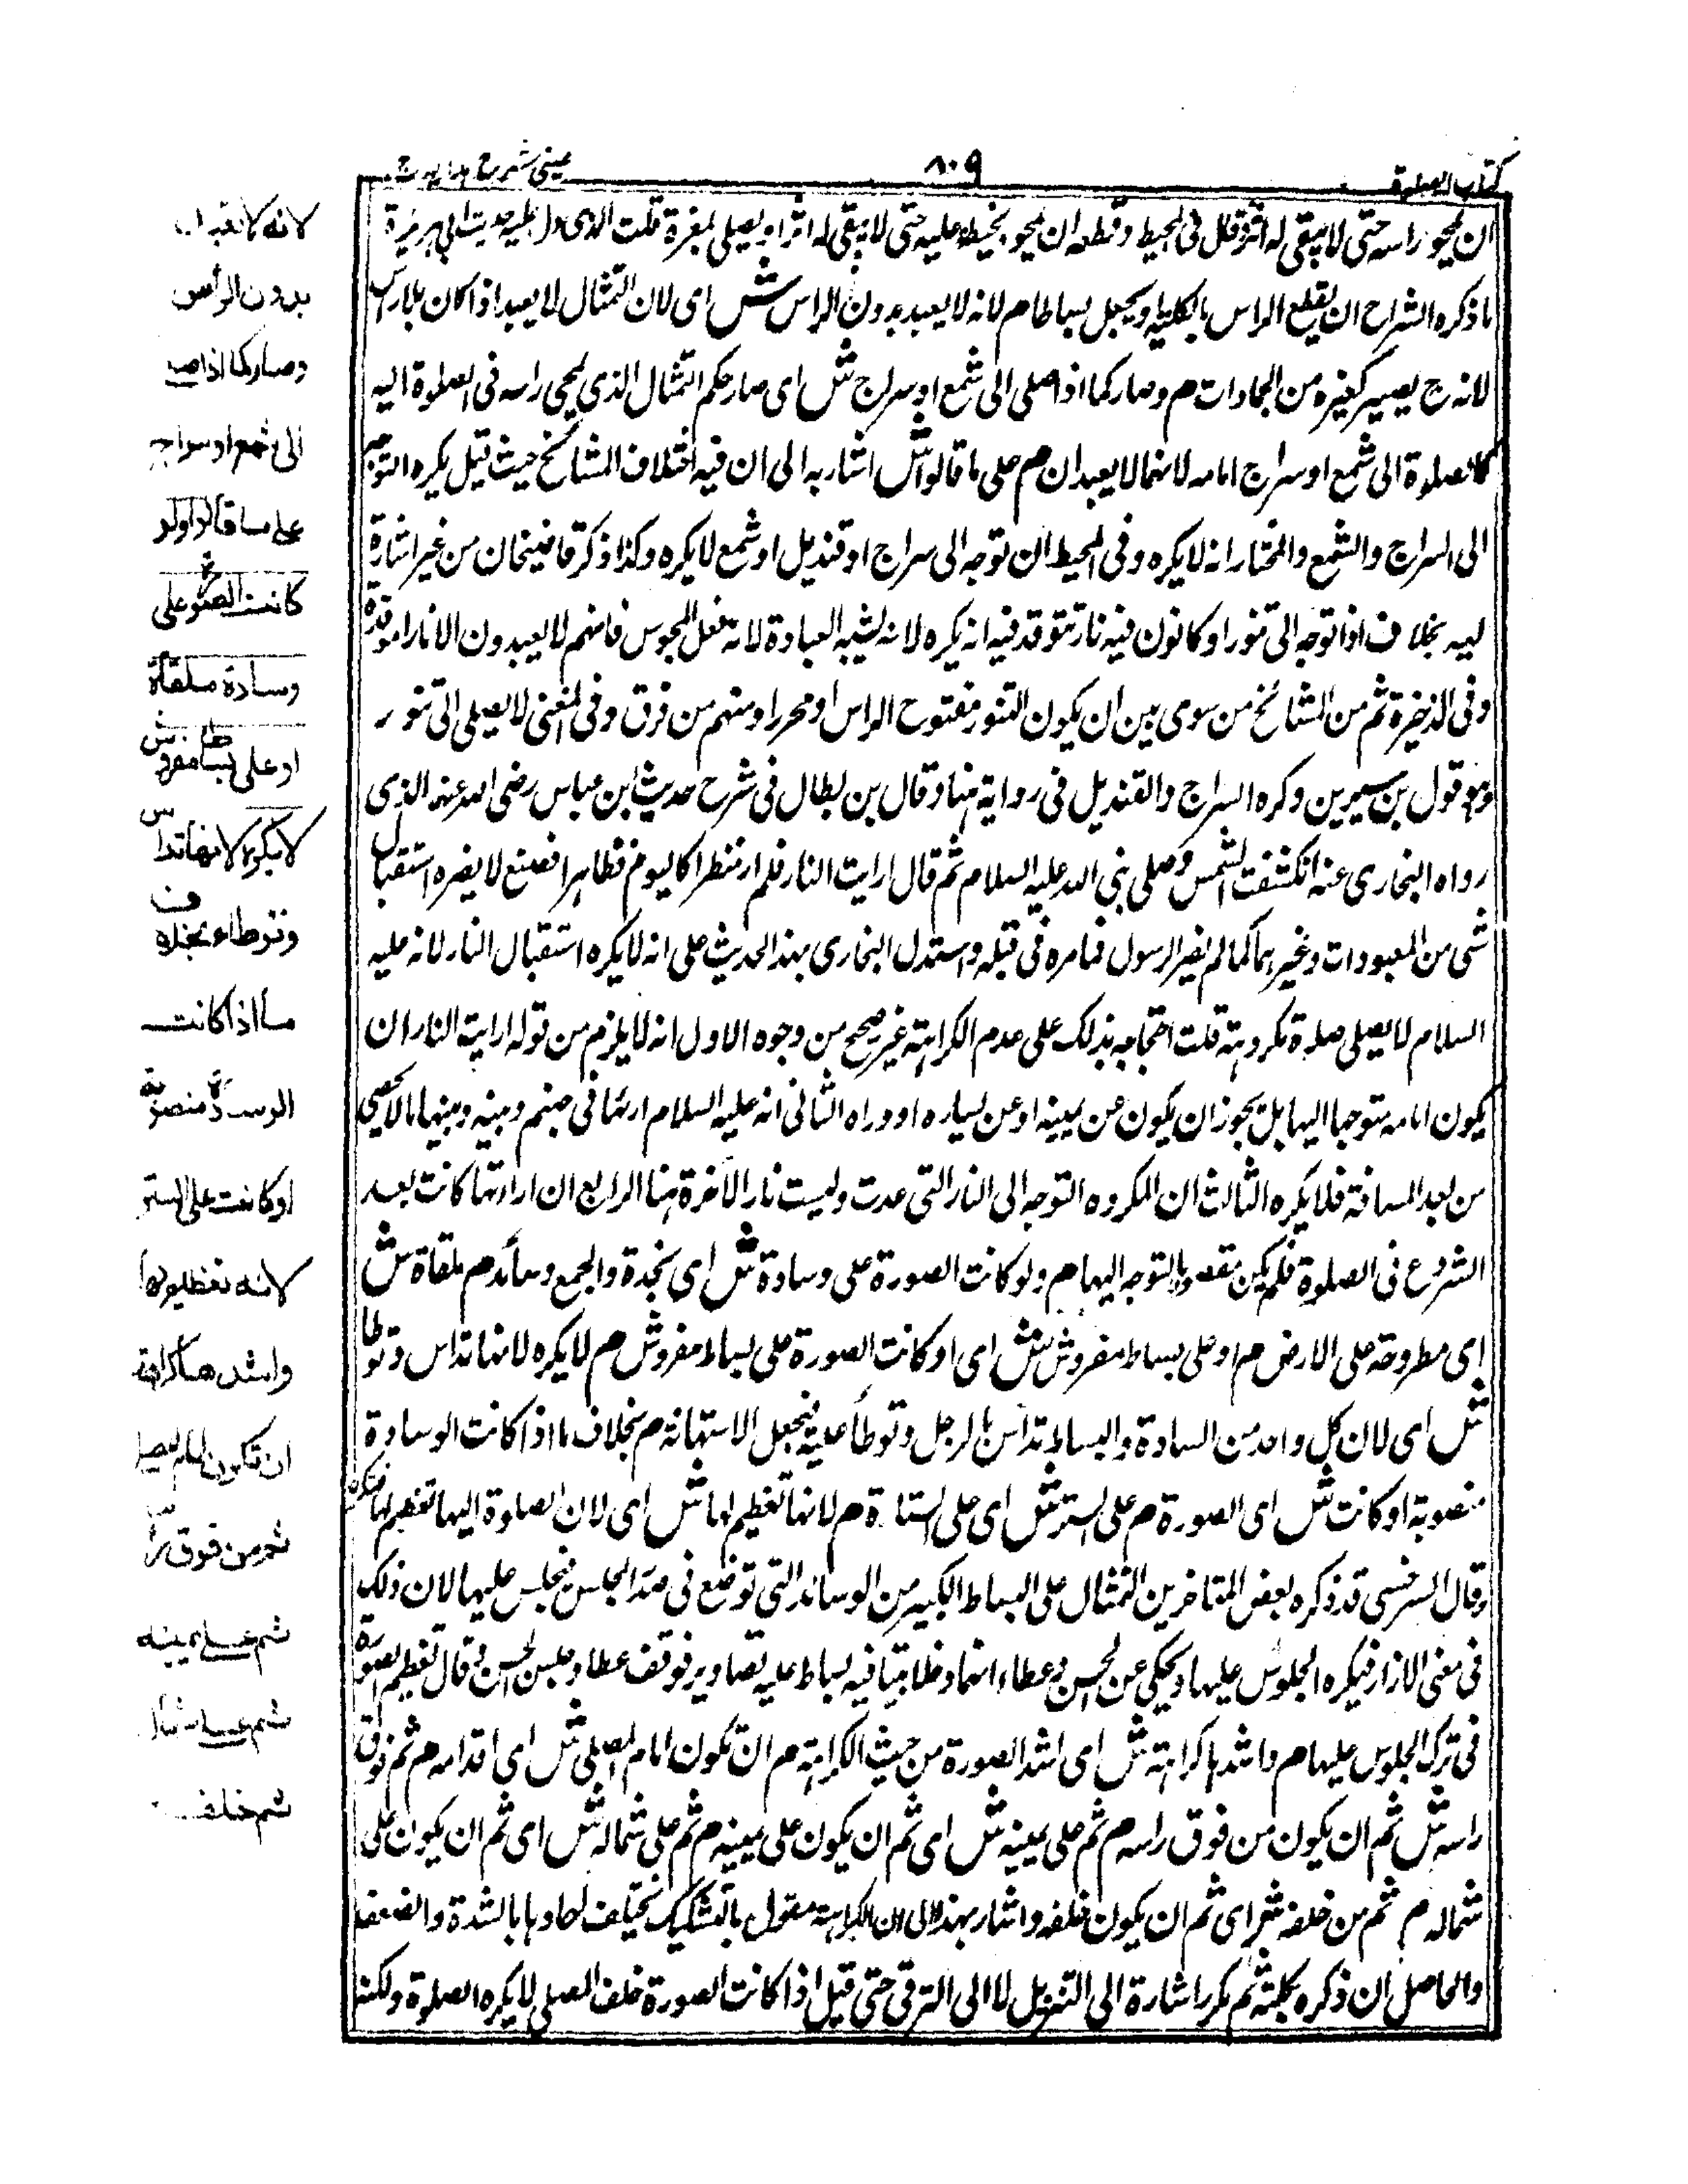 كتاب الصلوة
٨٠٩
عينى شرح هدايه ج
ان يمحو راسه حتى لا يبقى له اثر وقال فى المحيط وقطعه ان يمحو بخيط عليه حتى لا يبقى له اثر او يصلى بمغرة قلت الذى دل عليه حديث ابى هريرة
ما ذكره الشراح ان يقطع الراس بالكلية او يجعل بساطا م لانه لا يعبد بدون الراس ش اى لان التمثال لا يعبد اذا كان بلا راس
لانه ح يصير كغيره من الجمادات م وصار كما اذا صلى الى شمع او سراج ش اى صار حكم التمثال الذى يمحى راسه فى الصلوة اليه
كالصلوة الى شمع او سراج امامه لانهما لا يعبدان م على ما قالوا ش اشار به الى ان فيه اختلاف المشائخ حيث قيل يكره التوجه
الى السراج والشمع والمختار انه لا يكره وفى المحيط ان توجه الى سراج او قنديل او شمع لا يكره وكذا ذكر قاضيخان من غير اشارة
اليه بخلاف اذا توجه الى تنور او كانون فيه نار تتوقد فيه انه يكره لانه يشبه العبادة لانه فعل المجوس فانهم لا يعبدون الا نارا موقدة
وفى الذخيرة ثم من المشائخ من سوى بين ان يكون التنور مفتوح الراس او محررا ومنهم من فرق وفى المغنى لا يصلى الى تنور
وهو قول بن سيرين وكره السراج والقنديل فى رواية هنا وقال بن بطال فى شرح حديث ابن عباس رضى الله عنه الذى
رواه البخارى عنه انكشفت الشمس وصلى نبى الله عليه السلام ثم قال ارايت النار فلم ار منظرا كاليوم فظاهر افصنع لا يضره استقبال
شى من المعبودات وغيرهما كما لم يضر الرسول فما مره فى قبلة واستدل البخارى بهذا الحديث على انه لا يكره استقبال النار لانه عليه
السلام لا يصلى صلوة مكروهة قلت احتجاجه بذلك على عدم الكراهة غير صحيح من وجوه الاول انه لا يلزم من قوله ارايت النار ان
يكون امامه متوجها اليها بل يجوز ان يكون عن يمينه او عن يساره او وراه الثانى انه عليه السلام اريها فى جهنم وبينه وبينها ما لا يحصى
من بعد المسافة فلا يكره الثالث ان المكروه التوجه الى النار التى عدت وليست نار الآخرة هنا الرابع ان اراءتها كانت بعد
الشروع فى الصلوة فلم يكن مقصودا بالتوجه اليها م ولو كانت الصورة على وسادة ش اى نخدة والجمع وسائد م ملقاة ش
اى مطروحة على الارض م او على بساط مفروش ش اى او كانت الصورة على بساط مفروش م لا يكره لانها تداس وتوطا
ش اى لان كل واحد من السادة والبساط تداس بالرجل وتوطأ عليه فيجعل الاستهانة م بخلاف ما اذا كانت الوسادة
منصوبة او كانت ش اى الصورة م على الستر ش اى على الستارة م لانها تعظيم لها ش اى لان الصلوة اليها تعظيم لها
وقال السرخسى قد ذكره بعض المتاخرين التمثال على البساط الكبير من الوسائد التى توضع فى صدر المجلس فيجلس عليها لان ذلك
فى معنى الازار فيكره الجلوس عليها ويحكى عن الحسن وعطاء انهما دخلا بيتا فيه بساط عليه تصاوير فوقف عطا وجلس الحسن وقال تعظيم الصورة
فى ترك الجلوس عليها م واشدها كراهة ش اى اشد الصورة من حيث الكراهة م ان تكون امام المصلى ش اى اقدامه م ثم فوق
راسه ش ثم ان يكون من فوق راسه م ثم على يمينه ش اى ثم ان يكون على يمينه م ثم على شماله ش اى ثم ان يكون على
شماله م ثم من خلفه ش اى ثم ان يكون خلفه واشار بهذا الى ان الكراهة مقول بالتشكيك تختلف احادها بالشدة والضعف
والحاصل ان ذكره بكلمة ثم مكررا اشارة الى التنزيل لا الى الترقى حتى قيل اذا كانت الصورة خلف المصلى لا يكره الصلوة ولكنه
لانه لا تعبد
بدون الرأس
وصار كما اذا صلى
الى شمع او سراج
على ما قالوا ولو
كانت الصورة على
وسادة ملقاة
او على بساط مفروش
لا يكره لانها تداس
وتوطاء بخلاف
ما اذا كانت
الوسادة منصوبة
او كانت على الستر
لانه تعظيم لها
واشدها كراهة
ان تكون امام المصلى
ثم من فوق راسه
ثم على يمينه
ثم على شماله
ثم خلفه